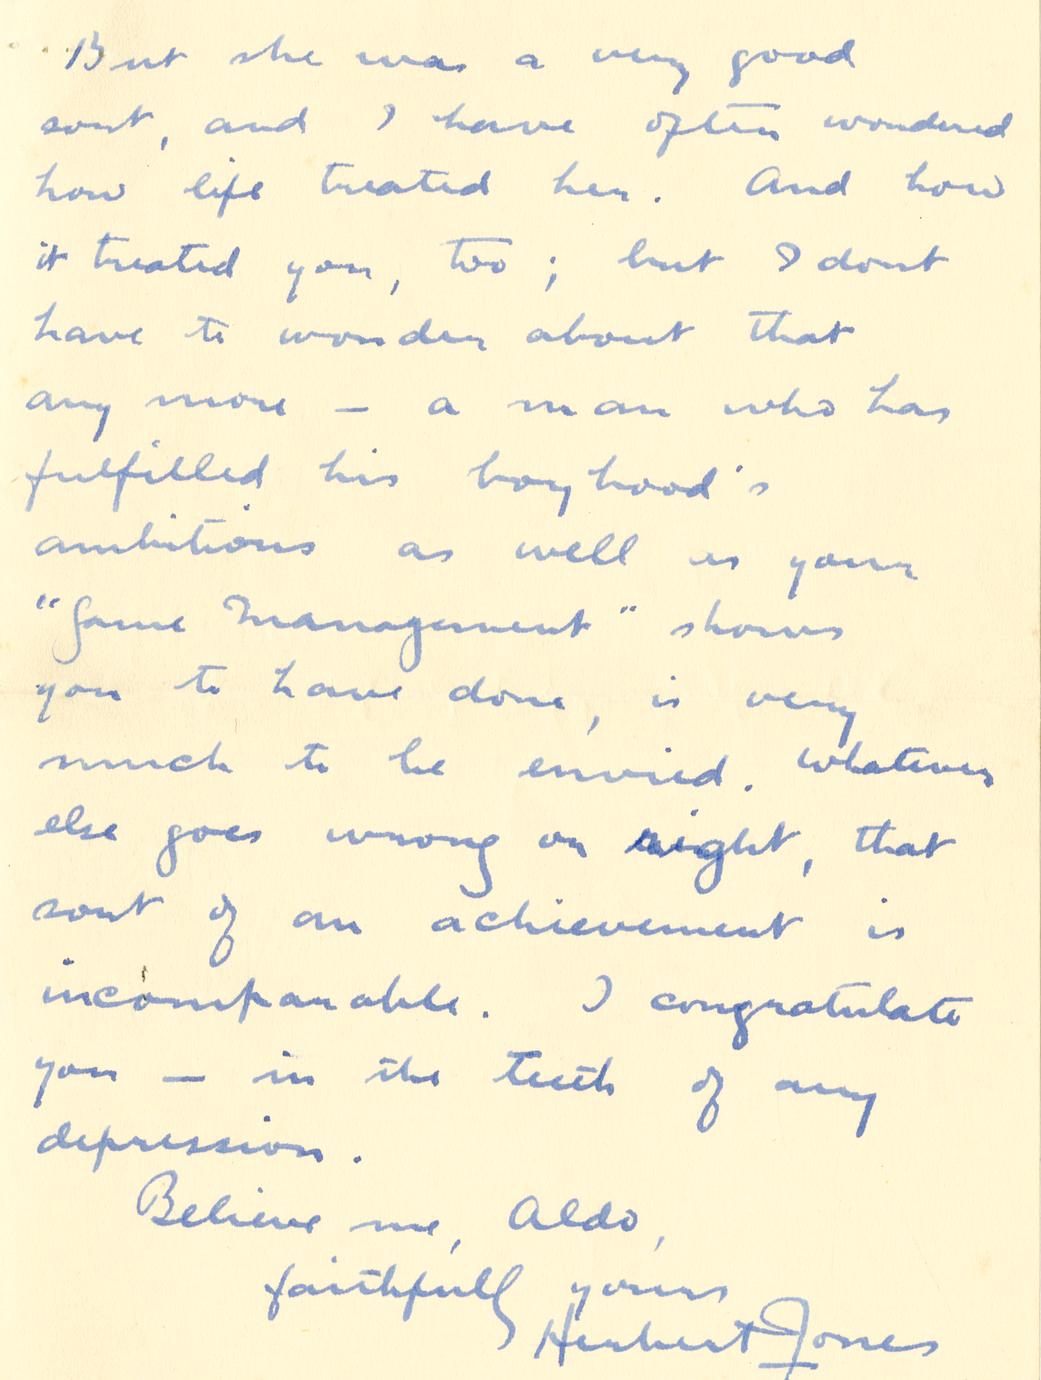 But she was a very good
sort, and I have often wondered
how life treated her. And how
it treated you, too; but I dont
have to wonder about that
any more — a man who has
fulfilled his boyhood's
ambitions as well as your
"Game Management" shows
you to have done, is very
much to be envied. Whatever
else goes wrong or right, that
sort of an achievement is
incomparable. I congratulate
you — in the teeth of any
depression.
Believe me, Aldo,
faithfully yours
Herbert Jones